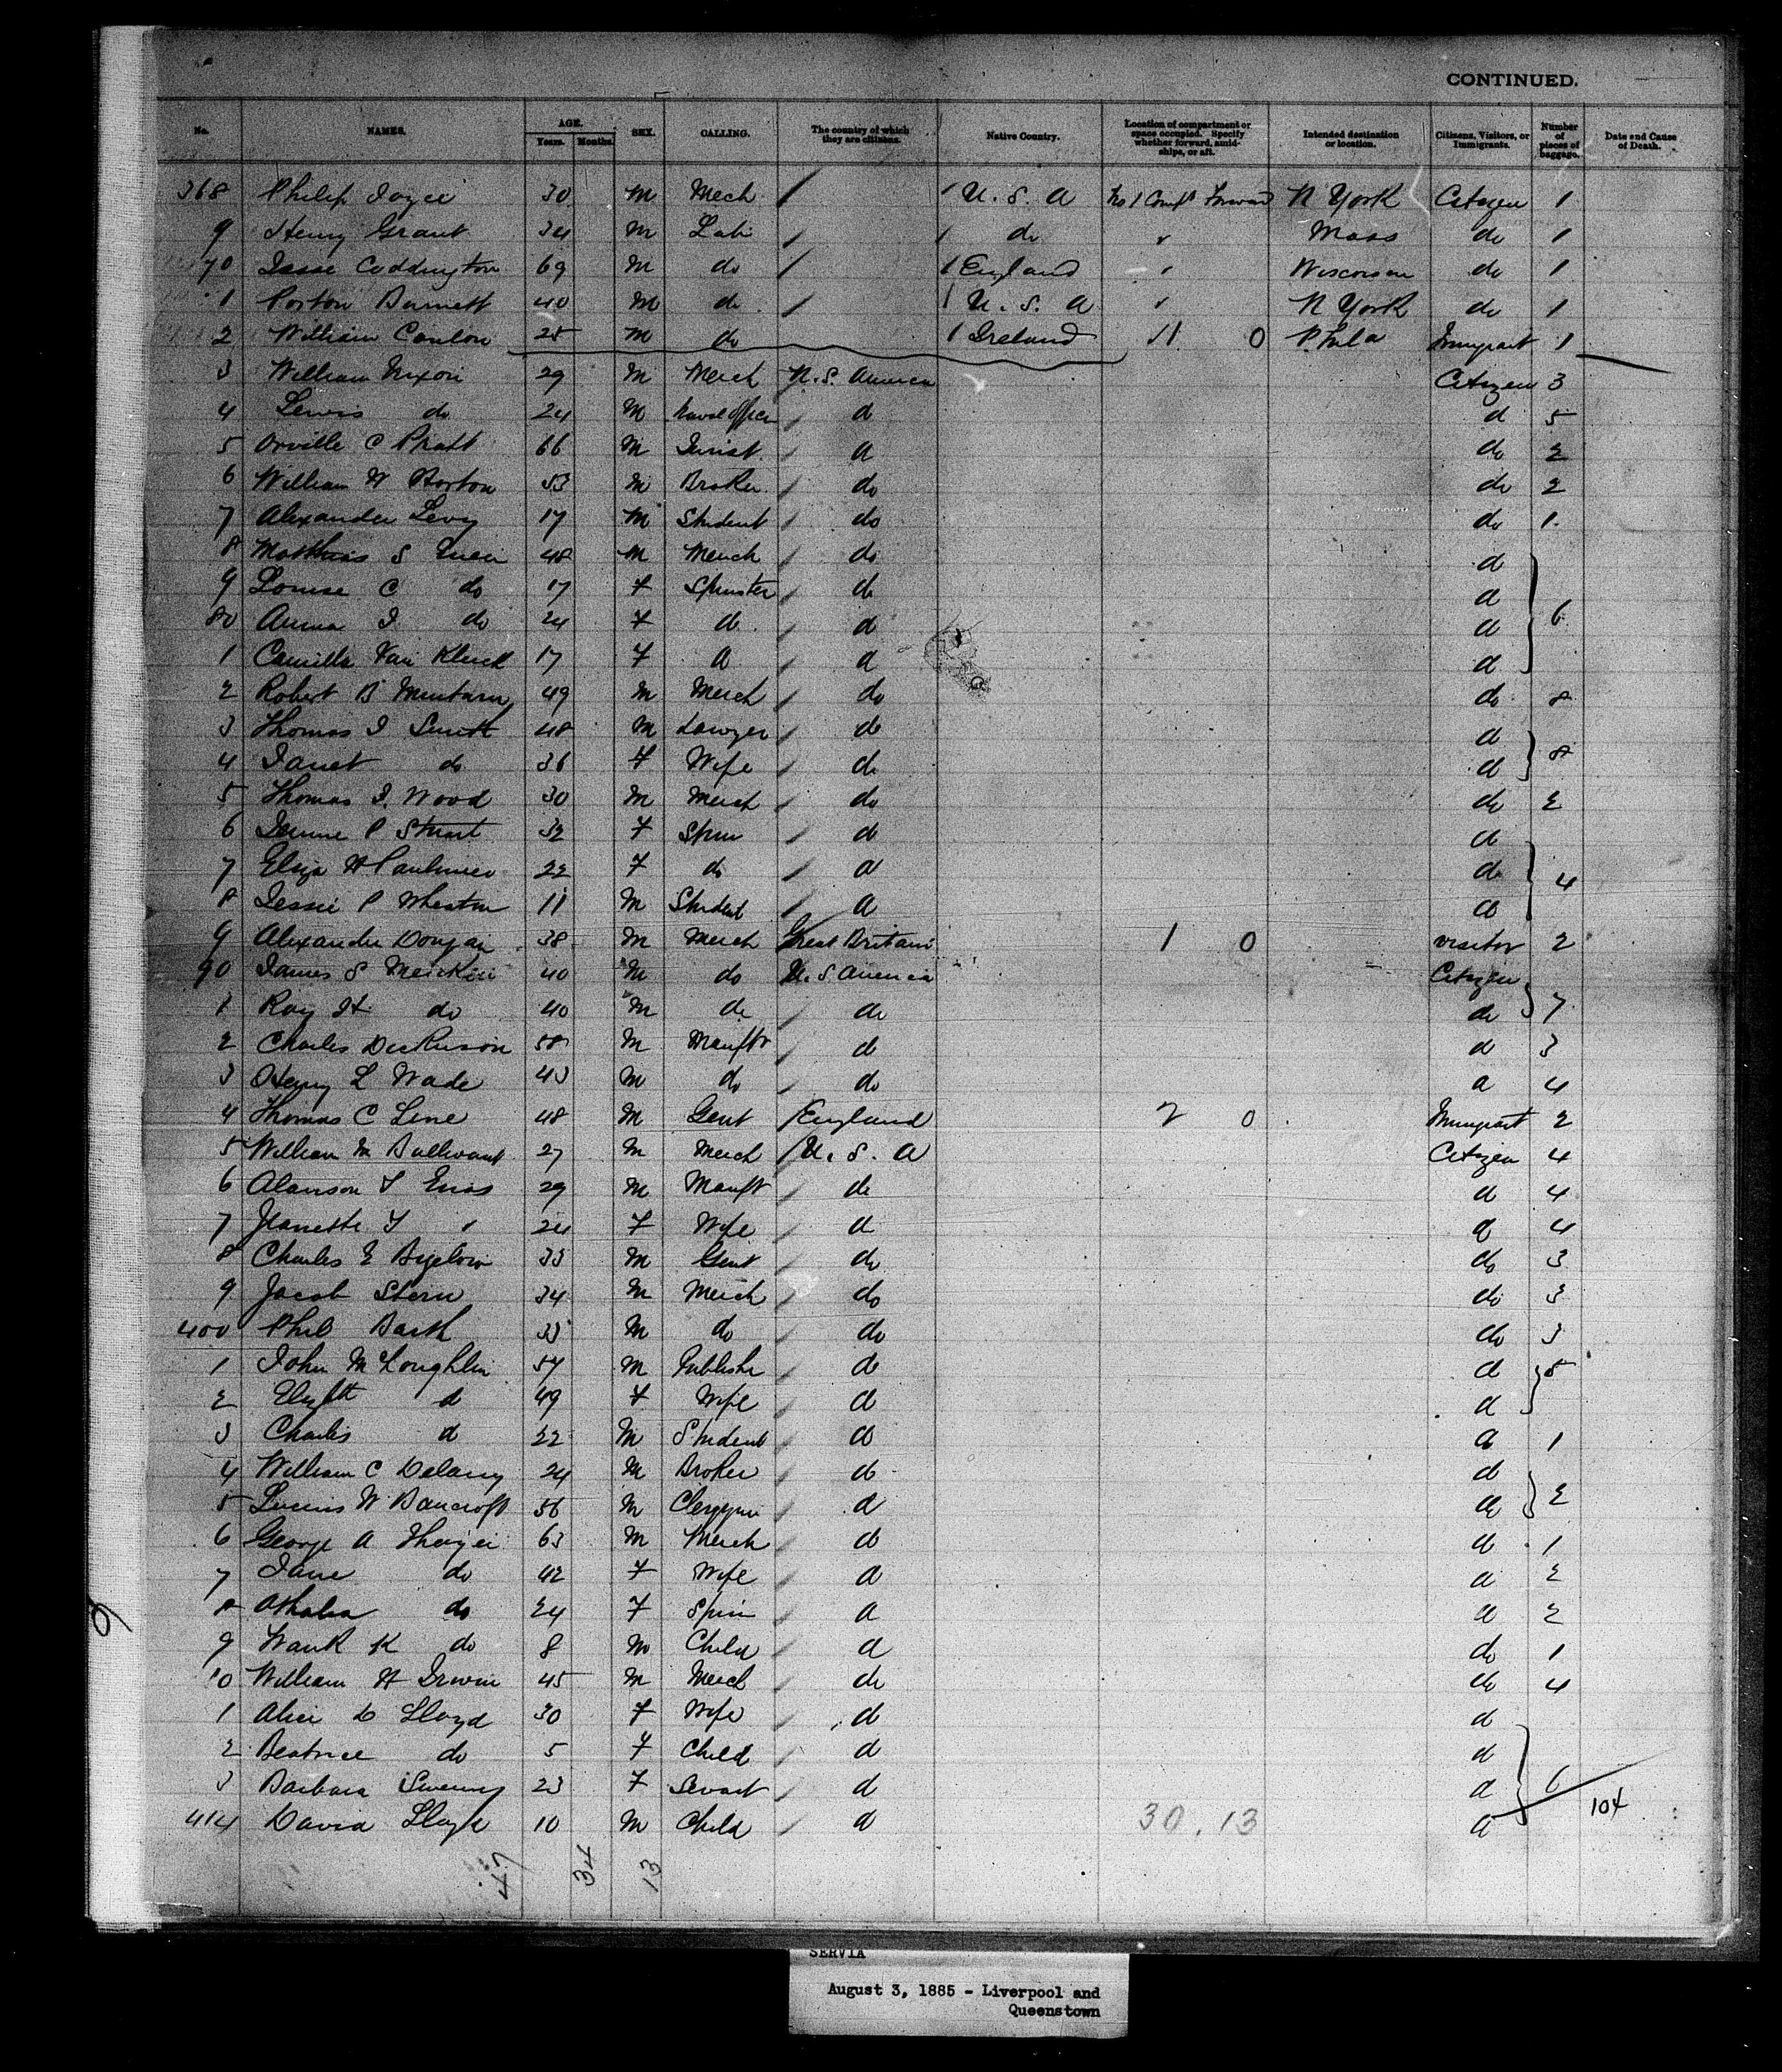 CONTINUED.
No. NAMES. AGE. Years. Months. SEX. CALLING. The country of which they are citizens. Native Country. Location of compartment or space occupied. Specify whether forward, amidships, or aft. Intended destination or location. Citizens, Visitors, or Immigrants. Number of pieces of baggage. Date and Cause of Death.
368 Philip Joyce 30 M Mech / U. S. A No 1 Compt Forward N York Citizen 1
9 Henry Grant 34 M Lab / do " Mass do 1
70 Jesse Coddington 69 M do / England " Wisconsin do 1
1 Porton Burnett 40 M do / U. S. A " N York do 1
2 William Conlon 25 M do 1 Ireland 11 0 Phila Immigrant 1
3 William Nixon 29 M Merch U. S. America Citizen 3
4 Lewis do 24 M Naval Officer d d 5
5 Orville C Pratt 66 M Jurist d do 2
6 William H Borton 53 M Broker do do 2
7 Alexander Levy 17 M Student do do 1
8 Matthias S 48 M Merch do d
9 Louise C do 17 F Spinster do d
80 Anna J. do 24 F do d d 6
1 Camilla Van Kleeck 17 F d d d
2 Robert B Minturn 49 M Merch do do 8
3 Thomas J Smith 48 M Lawyer do d
4 Janet do 36 F Wife do d 8
5 Thomas J. Wood 30 M Merch do do 2
6 Jennie P Stuart 32 F Spin d d
7 Eliza H 22 F do d do
8 Jessie P Wheaton 11 M Student d d 4
9 Alexander Dougan 38 M Merch Great Britain 1 0 visitor 2
90 James S 40 M do U. S. America Citizen
1 Roy H do 40 M do do do 7
2 Charles Dickinson 58 M Manftr d d 3
3 Henry L Wade 43 M do do d 4
4 Thomas C Line 48 M Gent England 2 0 Immigrant 2
5 William M Bullivant 27 M Merch U. S. A Citizen 4
6 Alanson T Enos 29 M Manftr do d 4
7 Jeanette Y " 24 F Wife d d 4
8 Charles E Bigelow 33 M Gent do do 3
9 Jacob Stern 34 M Merch do do 3
400 Phil Barth 33 M do do do 3
1 John McLoughlin 57 M Publisher d d 5
2 Elizbth d 49 F Wife d d
3 Charles d 22 M Student d d 1
4 William C Delany 24 M Broker d d
5 Lucius W Bancroft 56 M Clergyman d do 2
6 George A Thayer 63 M Merch d d 1
7 Jane do 42 F Wife d d 2
8 Athalia do 24 F Spin d d 2
9 K do 8 M Child d do 1
10 William H Irwin 45 M Merch do do 4
1 Alice D Lloyd 30 F Wife d d
2 Beatrice do 5 F Child d d
3 Barbara Sweeny 23 F Servant d d 6
414 David Lloyd 10 M Child d 30. 13 d 104
47 34 13
SERVIA
August 3, 1885 - Liverpool and
Queenstown